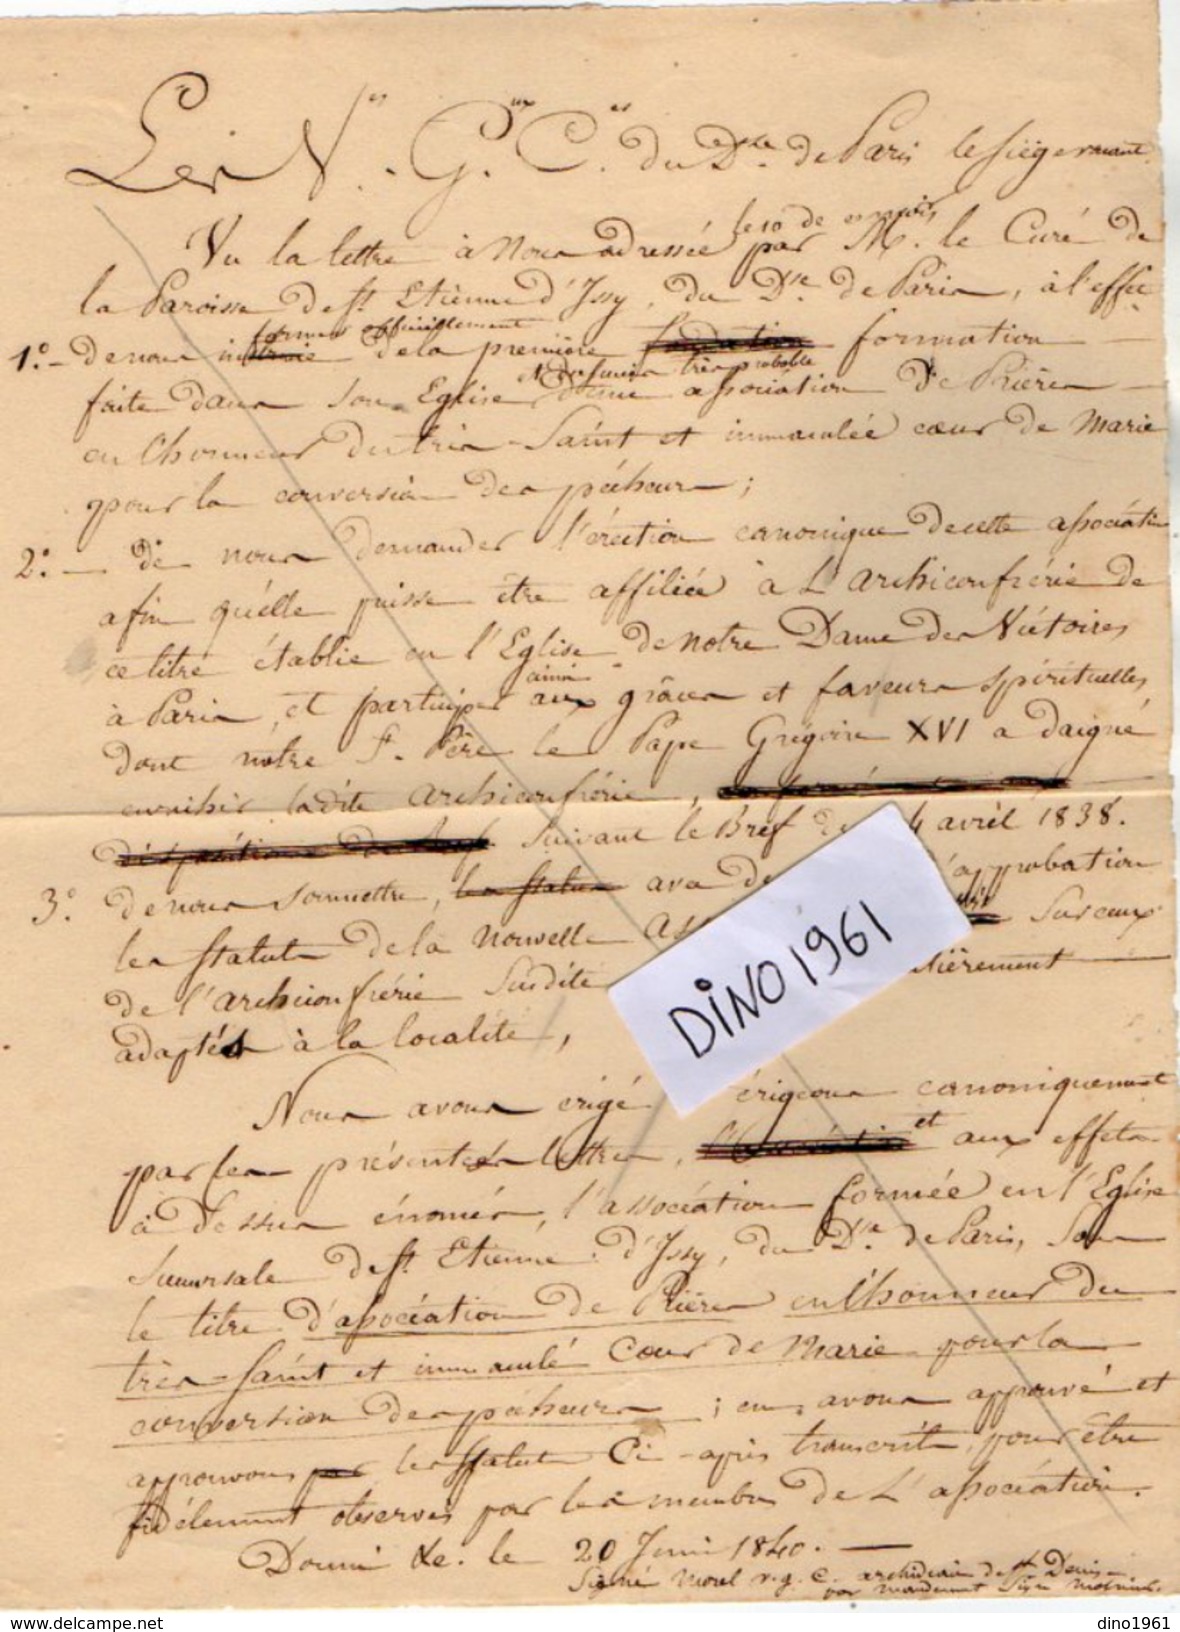 Les V.es G.ux C.es du D.se de Paris le siége vacant.
le 10 de ce mois
Vu la lettre à Nous adressée par M. le Curé de
la Paroisse de St. Etienne d'Issy, du D.se de Paris, à l'effet
former officiellement
1.° - de nous de la premiere formation
très probable
faite dans son Eglise d'une association de Prières
en l'honneur du très-Saint et immaculée cœur de Marie
pour la conversion des pécheurs ;
2.° - De nous demander l'érection canonique de cette association
afin qu'elle puisse être affiliée à L'archiconfrérie de
ce titre établie en l'Eglise de notre Dame des Victoires
ainsi
à Paris, et participer aux grâces et faveurs spirituelles
dont nôtre St. Père le Pape Grégoire XVI a daigné
enrichir ladite archiconfrérie,
dispositions du Bref suivant le Bref du 4 avril 1838.
3.° de nous soumettre, les statuts avec de d'approbation
les statuts de la nouvelle ass sur ceux
de l'archiconfrérie susdite lièrement
adaptés à la localité,
Nous avons érigé érigeons canoniquement
et
par les présentes lettres, l'association aux effets
à dessus énomés, l'association formée en l'Eglise
succursale de St. Etienne d'Issy, du D.se de Paris, sous
le titre d'association de Prières en l'honneur du
très-Saint et immaculé Cœur de Marie pour la
conversion des pécheurs ; en avons approuvé et
approuvons par les statuts Ci-après transcrits, pour être
fidélement observés par les membres de L'association.
Donné &e. le 20 Juin 1840.
Signé Morel v. g. C. archidiacre de St Denis
par mandement Signé
DINO1961
dino1961